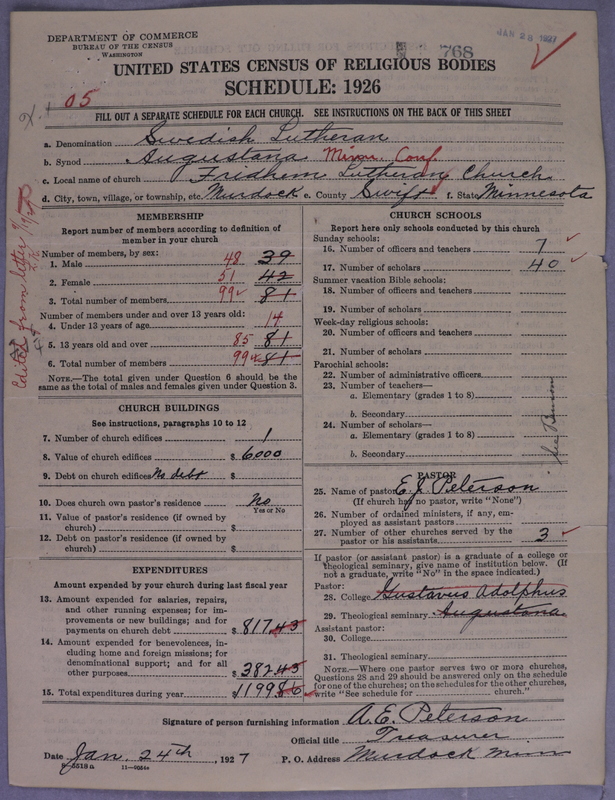 DEPARTMENT OF COMMERCE
BUREAU OF THE CENSUS
WASHINGTON
JAN 28 1927
768
UNITED STATES CENSUS OF RELIGIOUS BODIES
SCHEDULE: 1926
05
FILL OUT A SEPARATE SCHEDULE FOR EACH CHURCH. SEE INSTRUCTIONS ON THE BACK OF THIS SHEET
a. Denomination Swedish Lutheran
b. Synod Augustana Minn. Conf.
c. Local name of church Fridhem Lutheran Church
d. City, town, village, or township, etc. Murdock e. County Swift f. State Minnesota
Edited from letter
MEMBERSHIP
Report number of members according to definition of
member in your church
Number of members, by sex:
1. Male 48 39
2. Female 51 42
3. Total number of members 99 81
Number of members under and over 13 years old:
4. Under 13 years of age 14
5. 13 years old and over 85 81
6. Total number of members 99 81
NOTE.—The total given under Question 6 should be the
same as the total of males and females given under Question 3.
CHURCH BUILDINGS
See instructions, paragraphs 10 to 12
7. Number of church edifices 1
8. Value of church edifices $ 6000
9. Debt on church edifices No debt $
10. Does church own pastor's residence? No
Yes or No
11. Value of pastor's residence (if owned by
church) $
12. Debt on pastor's residence (if owned by
church) $
EXPENDITURES
Amount expended by your church during last fiscal year
13. Amount expended for salaries, repairs,
and other running expenses; for im-
provements or new buildings; and for
payments on church debt $ 817.43
14. Amount expended for benevolences, in-
cluding home and foreign missions; for
denominational support; and for all
other purposes $ 382.43
15. Total expenditures during year $ 1199.86
CHURCH SCHOOLS
Report here only schools conducted by this church
Sunday schools:
16. Number of officers and teachers 7
17. Number of scholars 40
Summer vacation Bible schools:
18. Number of officers and teachers
19. Number of scholars
Week-day religious schools:
20. Number of officers and teachers
21. Number of scholars
Parochial schools:
22. Number of administrative officers
23. Number of teachers—
a. Elementary (grades 1 to 8)
b. Secondary
24. Number of scholars—
a. Elementary (grades 1 to 8)
b. Secondary
See Benson
PASTOR
25. Name of pastor E. J. Peterson
(If church has no pastor, write "None")
26. Number of ordained ministers, if any, em-
ployed as assistant pastors
27. Number of other churches served by the
pastor or his assistants 3
If pastor (or assistant pastor) is a graduate of a college or
theological seminary, give name of institution below. (If
not a graduate, write "No" in the space indicated.)
Pastor:
28. College Gustavus Adolphus
29. Theological seminary Augustana
Assistant pastor:
30. College
31. Theological seminary
NOTE.—Where one pastor serves two or more churches,
Questions 28 and 29 should be answered only on the schedule
for one of the churches; on the schedules for the other churches,
write "See schedule for church."
Signature of person furnishing information A. E. Peterson
Official title Treasurer
Date Jan. 24th, 1927 P. O. Address Murdock Minn
8-5518a 11-9054a